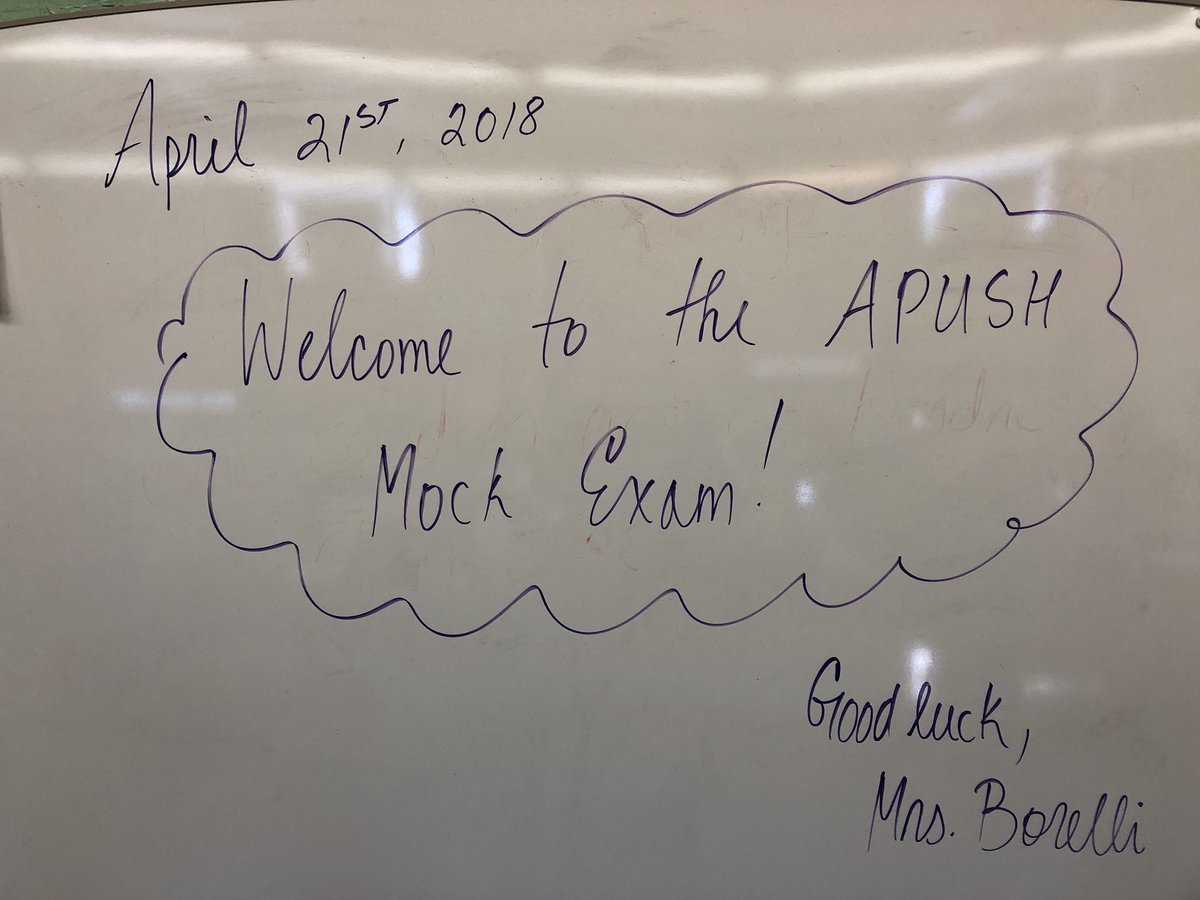 April 21ST, 2018
Welcome to the APUSH
Mock Exam!
Good luck,
Mrs. Borelli